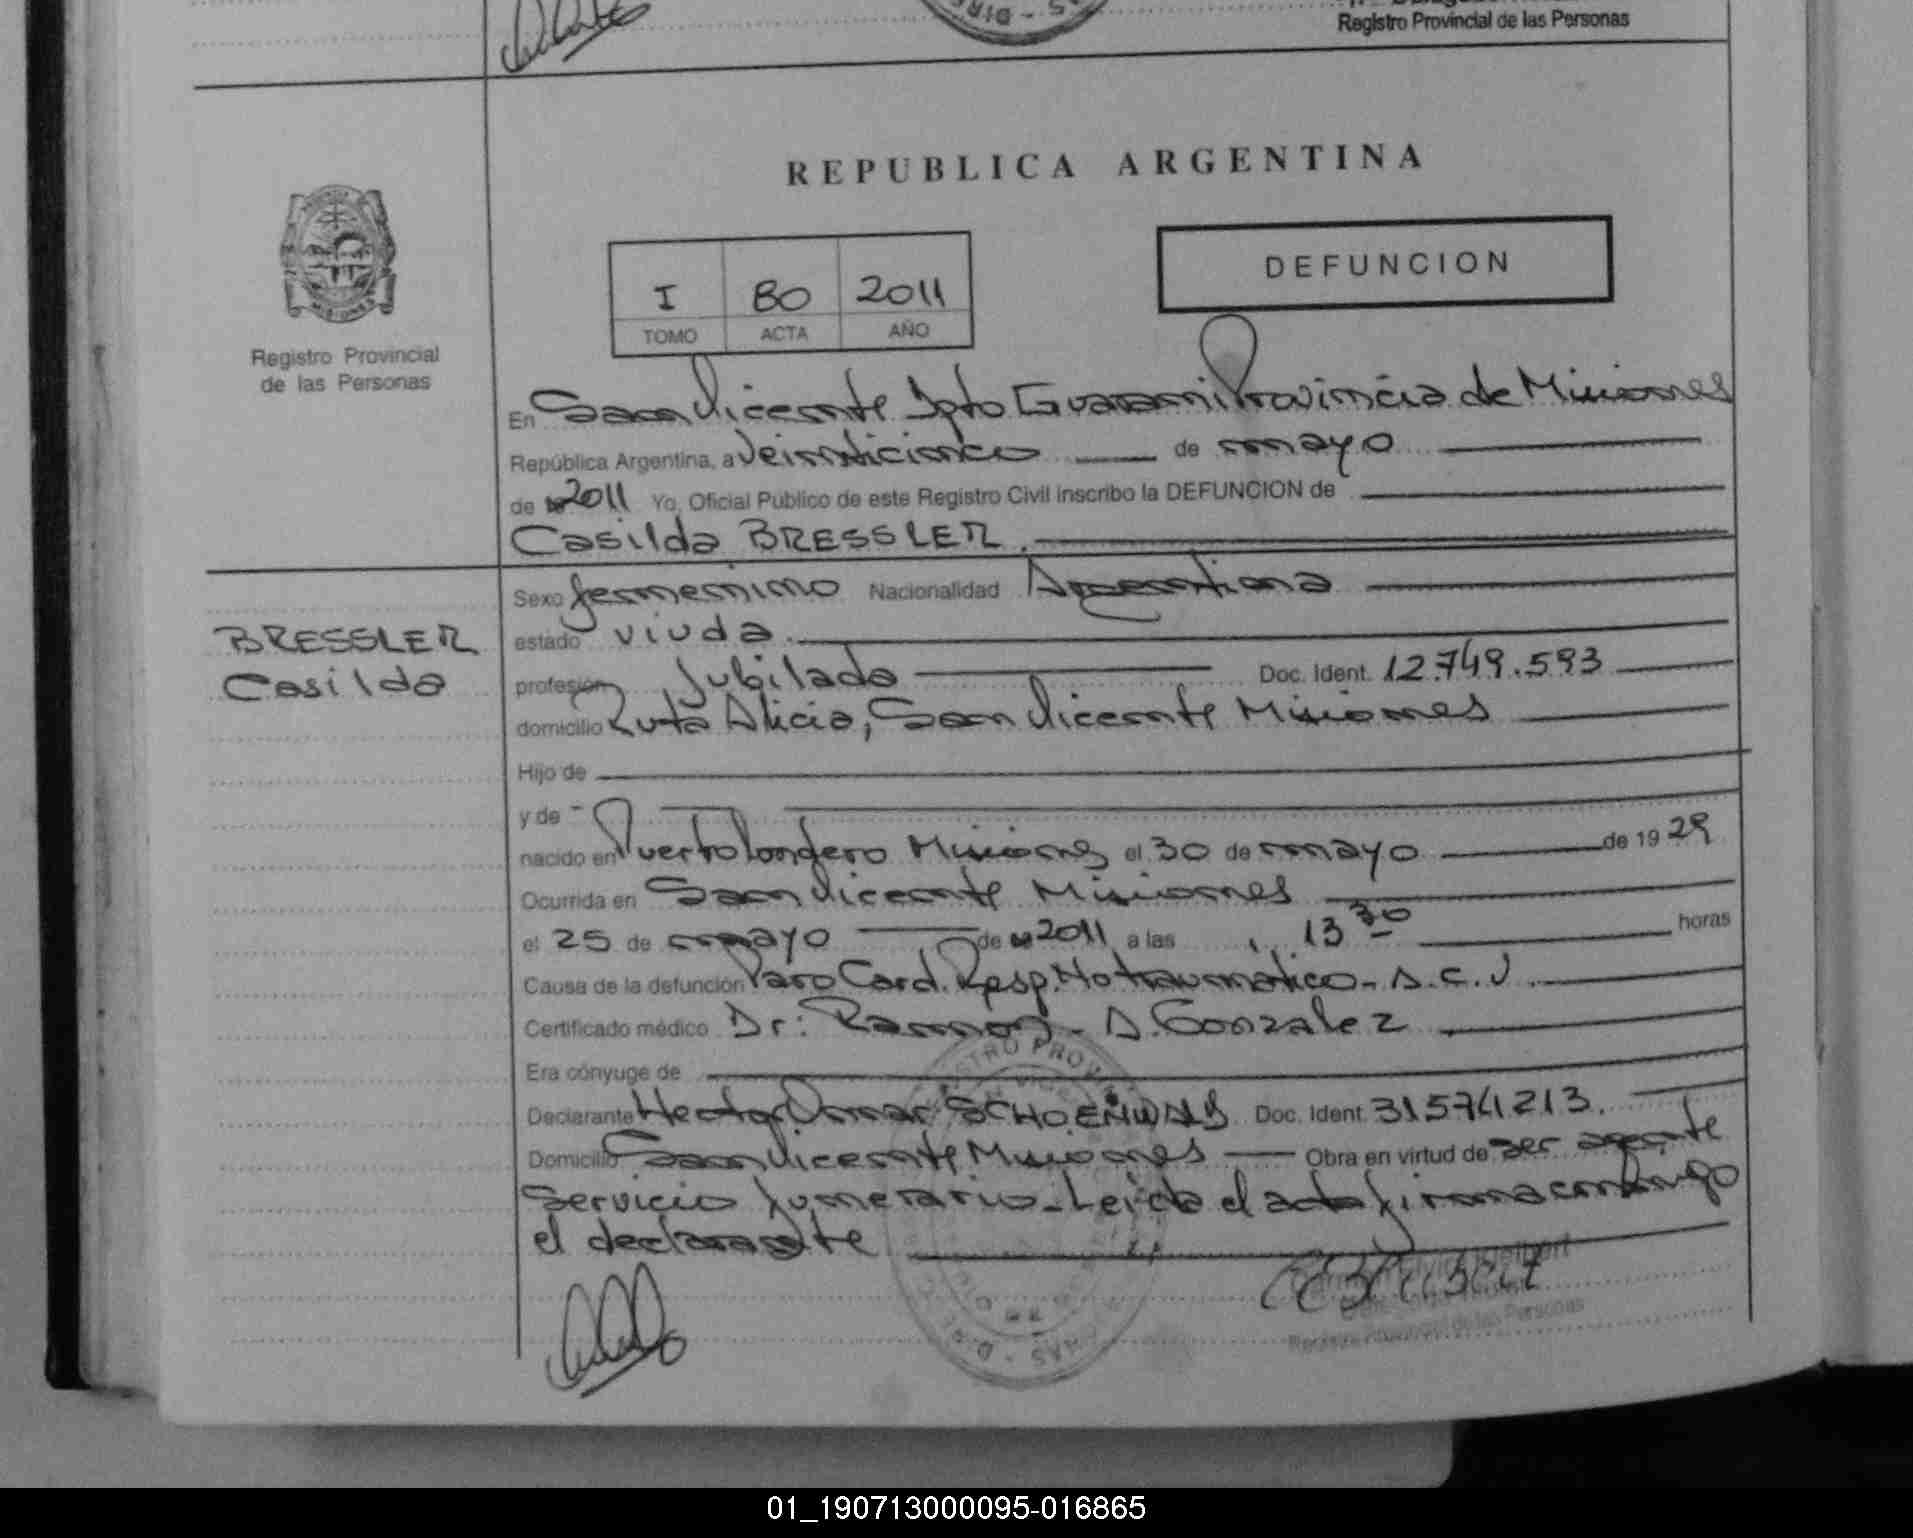 Registro Provincial de las Personas
REPUBLICA ARGENTINA
DEFUNCION
I 80 2011
TOMO ACTA AÑO
Registro Provincial
de las Personas
En San Vicente Dpto Guarani Provincia de Misiones
República Argentina, a Veinticinco de mayo
de 2011 Yo, Oficial Público de este Registro Civil inscribo la DEFUNCION de
Casilda BRESSLER.
BRESSLER
Casilda
Sexo femenino Nacionalidad Argentina
estado viuda.
profesión Jubilada Doc. Ident. 12.749.593
domicilio Ruta Alicia, San Vicente Misiones
Hijo de
y de
nacido en Puerto Londero Misiones el 30 de mayo de 1929
Ocurrida en San Vicente Misiones
el 25 de mayo de 2011 a las 13 30 horas
Causa de la defunción Paro Card. Resp. No traumático - A.C.V.
Certificado médico Dr: Ramon - A. Gonzalez
Era cónyuge de
Declarante Hector Omar SCHOENWALD Doc. Ident. 31574213.
Domicilio San Vicente Misiones Obra en virtud de ser agente
Servicio funerario - Leida el acta firma conmigo
el declarante
Registro Provincial de las Personas
01_190713000095-016865